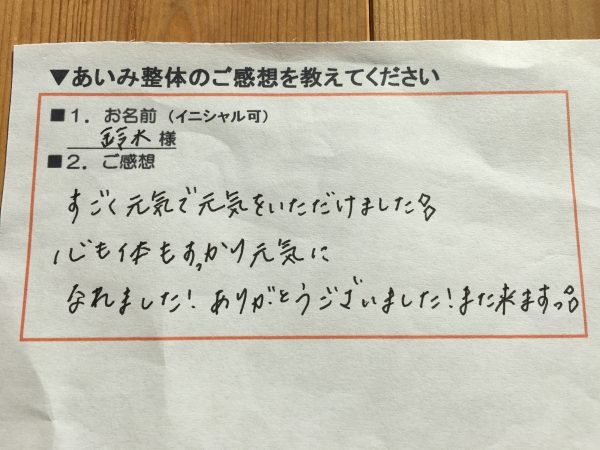 ▼あいみ整体のご感想を教えてください
■1．お名前（イニシャル可）
鈴木 様
■2．ご感想
すごく元気で元気をいただけました!!
心も体もすっかり元気に
なれました！ありがとうございました！また来ますっ!!